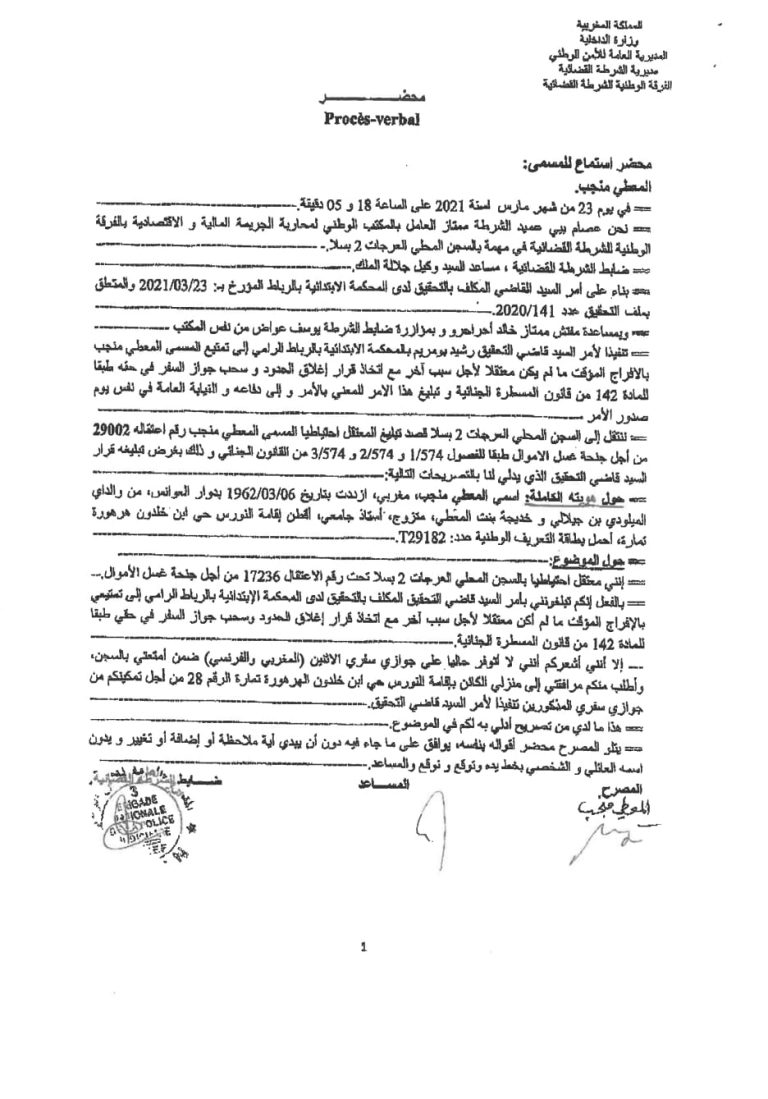 المملكة المغربية
وزارة الداخلية
المديرية العامة للأمن الوطني
مديرية الشرطة القضائية
الفرقة الوطنية للشرطة القضائية
محضـــــــر
Procès-verbal
محضر استماع للمسمى:
المعطي منجب.
== في يوم 23 من شهر مارس لسنة 2021 على الساعة 18 و 05 دقيقة.
== نحن عصام بيي عميد الشرطة ممتاز العامل بالمكتب الوطني لمحاربة الجريمة المالية و الاقتصادية بالفرقة
الوطنية للشرطة القضائية في مهمة بالسجن المحلي العرجات 2 بسلا.
== ضابط الشرطة القضائية ، مساعد السيد وكيل جلالة الملك.
== بناء على أمر السيد القاضي المكلف بالتحقيق لدى المحكمة الابتدائية بالرباط المؤرخ بـ: 2021/03/23 والمتعلق
بملف التحقيق عدد 2020/141.
== وبمساعدة مفتش ممتاز خالد أجراحرو و بمؤازرة ضابط الشرطة يوسف عواض من نفس المكتب
== تنفيذا لأمر السيد قاضي التحقيق رشيد بومريم بالمحكمة الابتدائية بالرباط الرامي إلى تمتيع المسمى المعطي منجب
بالافراج المؤقت ما لم يكن معتقلا لأجل سبب آخر مع اتخاذ قرار إغلاق الحدود و سحب جواز السفر في حقه طبقا
للمادة 142 من قانون المسطرة الجنائية و تبليغ هذا الامر للمعني بالأمر و إلى دفاعه و النيابة العامة في نفس يوم
صدور الأمر
== ننتقل إلى السجن المحلي العرجات 2 بسلا قصد تبليغ المعتقل احتياطيا المسمى المعطي منجب رقم اعتقاله 29002
من أجل جنحة غسل الاموال طبقا للفصول 1/574 و 2/574 و 3/574 من القانون الجنائي و ذلك بغرض تبليغه قرار
السيد قاضي التحقيق الذي يدلي لنا بالتصريحات التالية:
== حول هويته الكاملة: اسمي المعطي منجب، مغربي، ازددت بتاريخ 1962/03/06 بدوار العوانس، من والداي
الميلودي بن جيلالي و خديجة بنت المعطي، متزوج، أستاذ جامعي، أقطن إقامة النورس حي ابن خلدون هرهورة
تمارة، أحمل بطاقة التعريف الوطنية عدد: T29182.
== حول الموضوع:
== إنني معتقل احتياطيا بالسجن المحلي العرجات 2 بسلا تحت رقم الاعتقال 17236 من أجل جنحة غسل الأموال.
== بالفعل إنكم تبلغونني بأمر السيد قاضي التحقيق المكلف بالتحقيق لدى المحكمة الإبتدائية بالرباط الرامي إلى تمتيعي
بالإفراج المؤقت ما لم أكن معتقلا لأجل سبب آخر مع اتخاذ قرار إغلاق الحدود وسحب جواز السفر في حقي طبقا
للمادة 142 من قانون المسطرة الجنائية.
--- إلا أنني أشعركم أنني لا أتوفر حاليا على جوازي سفري الاثنين (المغربي والفرنسي) ضمن أمتعتي بالسجن،
وأطلب منكم مرافقتي إلى منزلي الكائن بإقامة النورس حي ابن خلدون الهرهورة تمارة الرقم 28 من أجل تمكينكم من
جوازي سفري المذكورين تنفيذا لأمر السيد قاضي التحقيق.
== هذا ما لدي من تصريح أدلي به لكم في الموضوع.
== يتلو المصرح محضر أقواله بنفسه، يوافق على ما جاء فيه دون أن يبدي أية ملاحظة أو إضافة أو تغيير و يدون
اسمه العائلي و الشخصي بخط يده وتوقع و نوقع والمساعد.
المصرح. المساعد ضـابط الشرطة القضائية.
المعطي منجب
3
BRIGADE
NATIONALE
POLICE
JUDICIAIRE
1